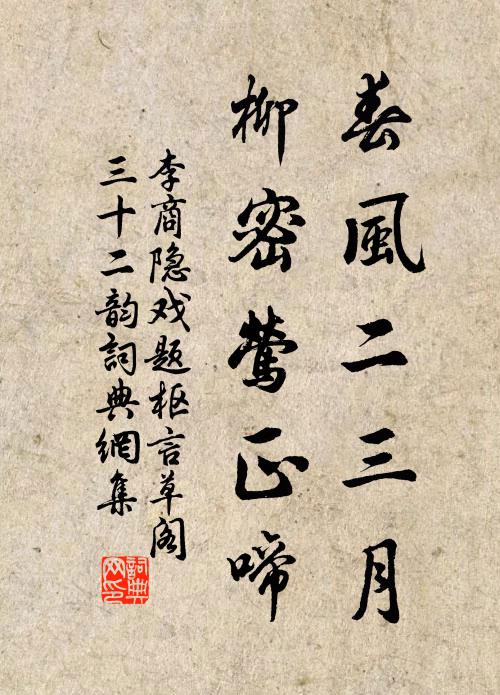 春風二三月
柳密鶯正啼
李商隐戏题枢言草阁
三十二韵詞典網集
詞典
网印